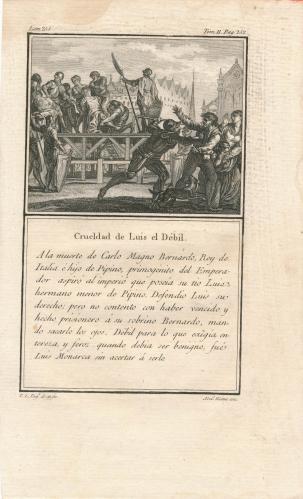 Lam. 251
Tom. II. Pag. 252
Crueldad de Luis el Débil.
A la muerte de Carlo Magno Bernardo, Rey de
Italia e hijo de Pipino, primogenito del Empera-
dor aspiró al imperio que poseia su tio Luis
hermano menor de Pipino. Defendio Luis su
derecho; pero no contento con haber vencido y
hecho prisionero a su sobrino Bernardo, man-
do sacarle los ojos. Débil para lo que exigia en-
tereza, y feroz quando debia ser benigno, fué
Luis Monarca sin acertar á serlo.